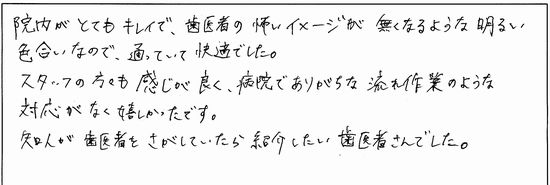 院内がとてもキレイで、歯医者の怖いイメージが無くなるような明るい
色合いなので、通っていて快適でした。
スタッフの方々も感じが良く、病院でありがちな流れ作業のような
対応がなく嬉しかったです。
知人が歯医者をさがしていたら紹介したい歯医者さんでした。